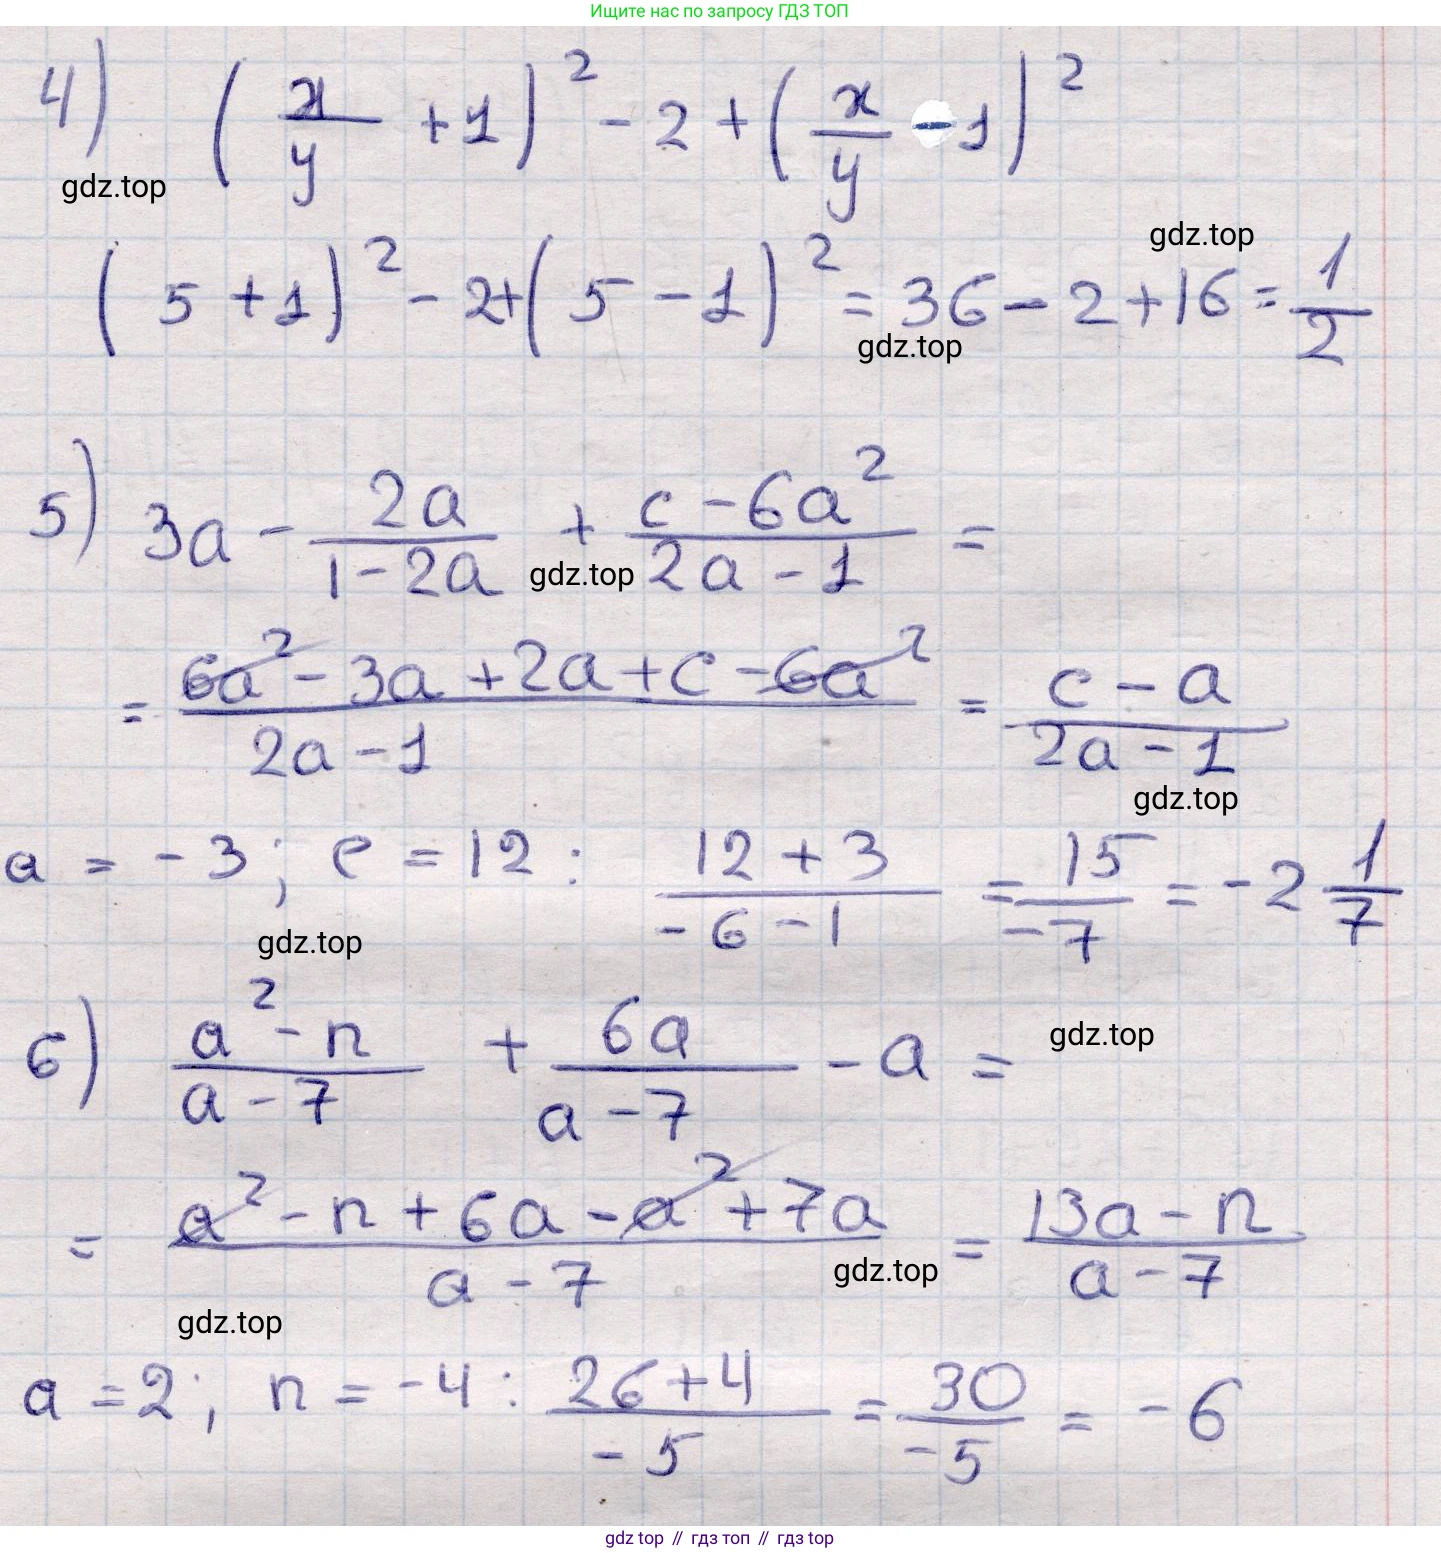 Ищите нас по запросу ГДЗ ТОП
4) (x/y + 1)² - 2 + (x/y - 1)²
gdz.top
gdz.top
(5 + 1)² - 2 + (5 - 1)² = 36 - 2 + 16 = 1/2
gdz.top
5) 3a - 2a/(1 - 2a) + (c - 6a²)/(2a - 1) =
gdz.top
= (6a² - 3a + 2a + c - 6a²)/(2a - 1) = (c - a)/(2a - 1)
gdz.top
a = -3; c = 12: (12 + 3)/(-6 - 1) = 15/(-7) = -2 1/7
gdz.top
6) (a² - n)/(a - 7) + 6a/(a - 7) - a =
gdz.top
= (a² - n + 6a - a² + 7a)/(a - 7) = (13a - n)/(a - 7)
gdz.top
gdz.top
a = 2; n = -4: (26 + 4)/(-5) = 30/(-5) = -6
gdz top // гдз топ // gdz top